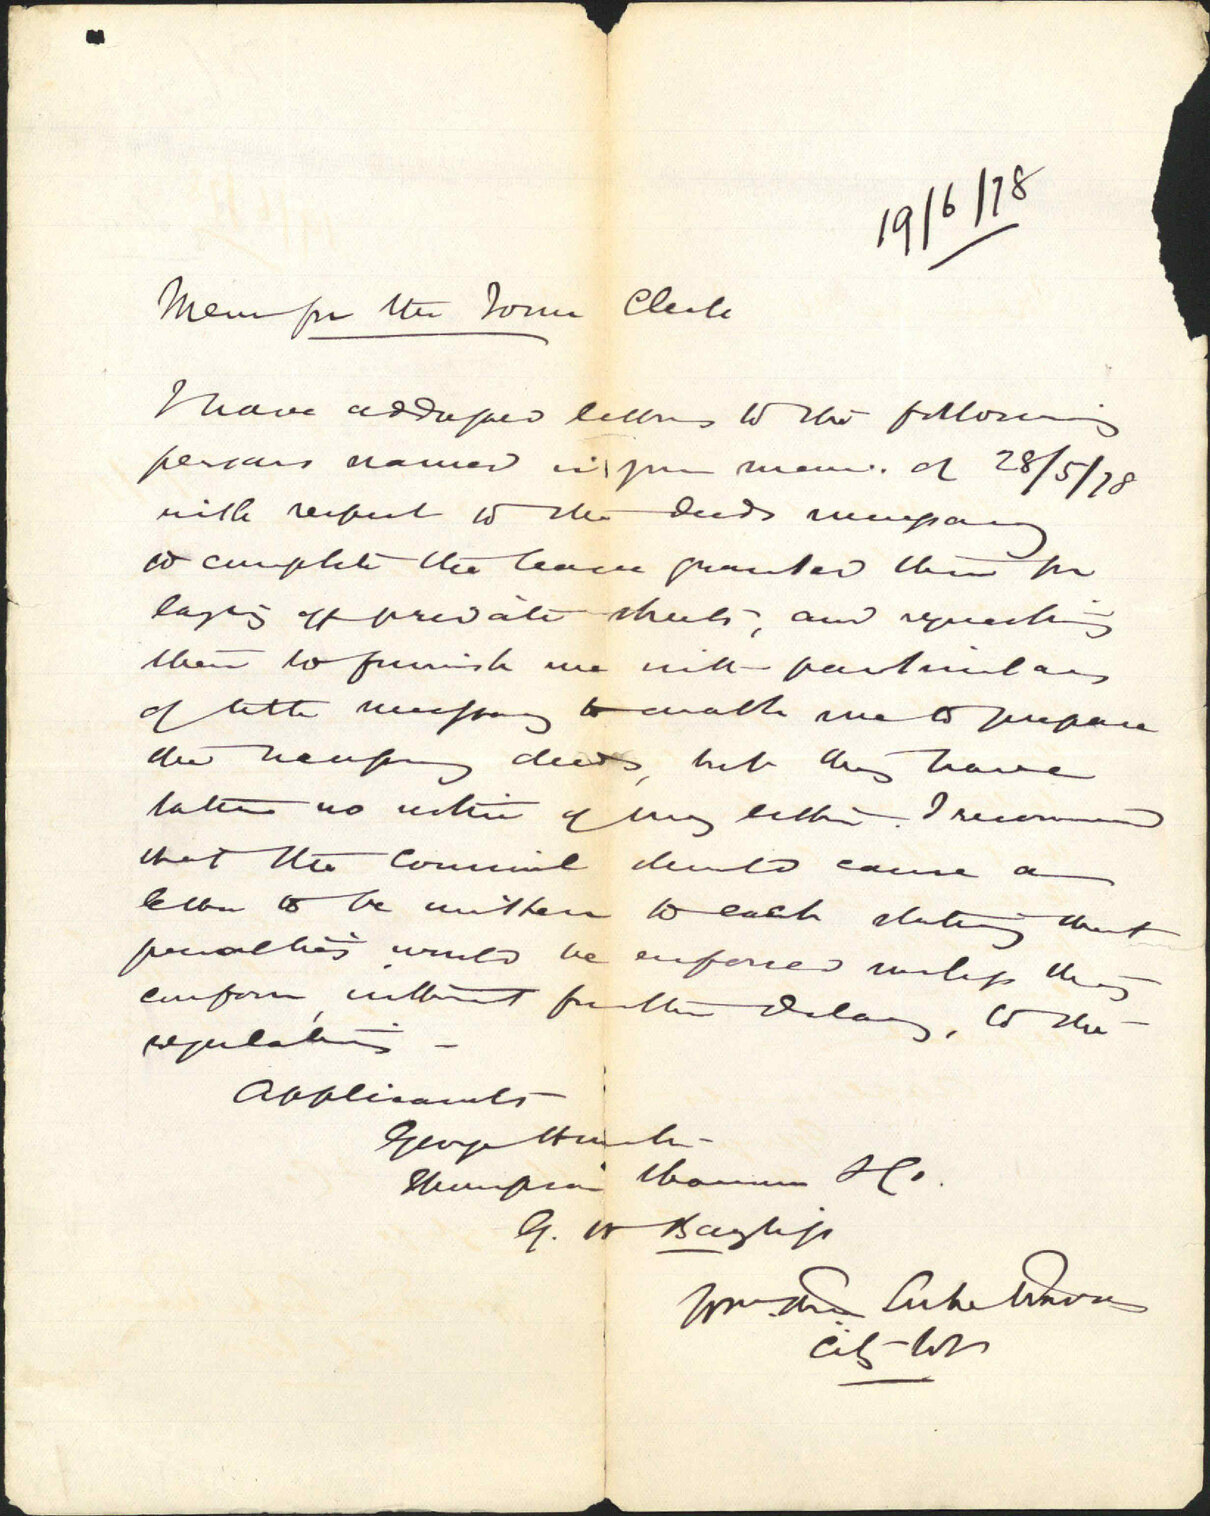 19/6/78
Memo for the Town Clerk
I have addressed letters to the following
persons named in your memo. of 28/5/78
with respect to the deeds necessary
to complete the leave granted them for
laying off private streets, and requesting
them to furnish me with particulars
of title necessary to enable me to prepare
the necessary deeds, but they have
taken no notice of my letter. I recommend
that the Council should cause a
letter to be written to each stating that
penalties would be enforced unless they
conform, without further delay, to the
regulations –
Applicants
George
Thompson Shannon & Co.
G. W
City